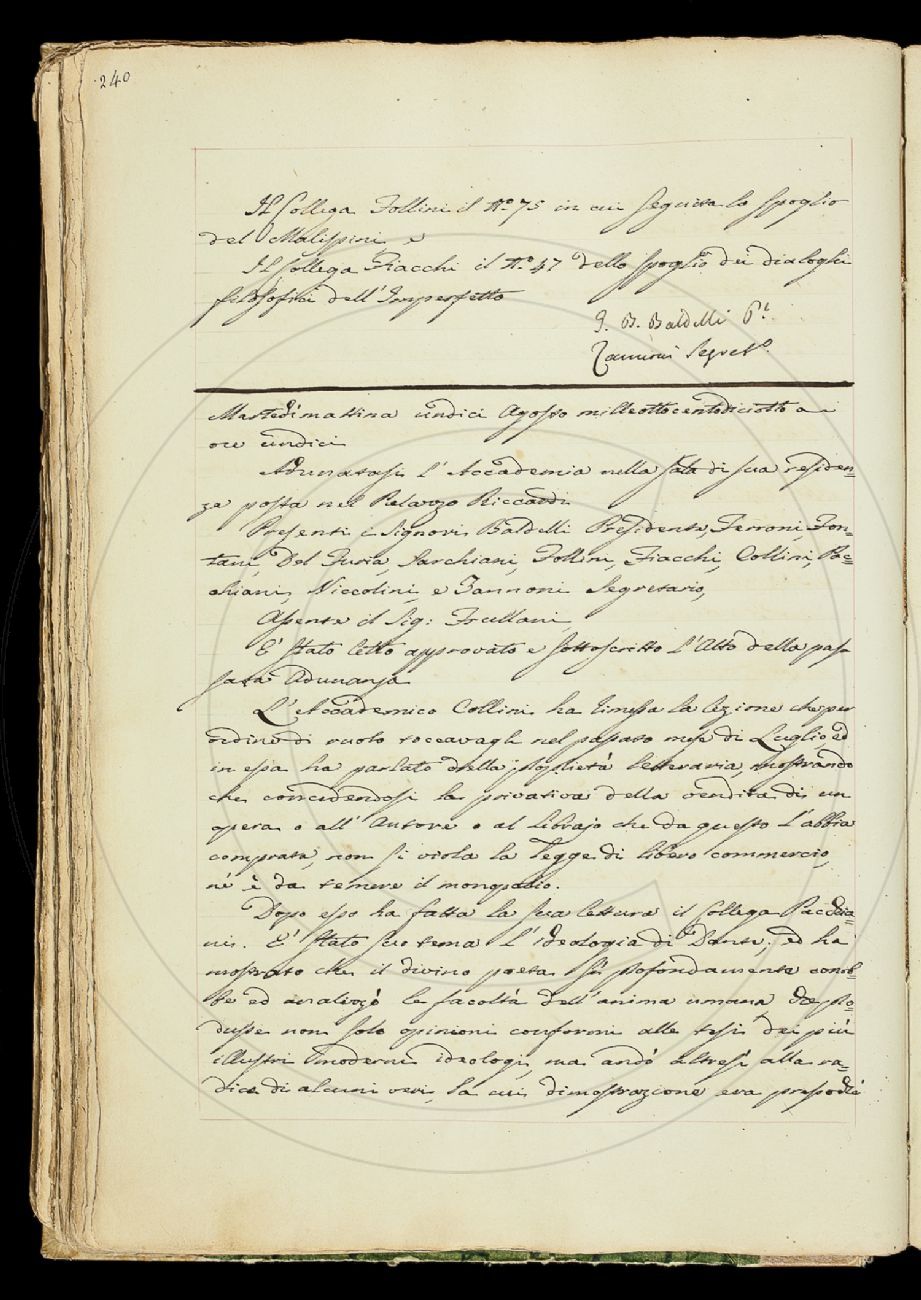 240
Il Collega Follini il N.º 75 in cui seguita lo spoglio
del Malispini, e
Il Collega Fiacchi il N.º 47 dello spoglio dei dialoghi
filosofici dell'Imperfetto
G. B. Baldelli P.e
Zannoni Segret.º
Martedì mattina undici Agosto milleottocentodiciotto a
ore undici
Adunatasi l'Accademia nella sala di sua residen=
za posta nel Palazzo Riccardi
Presenti i Signori Baldelli Presidente, Ferroni, Fon=
tani, Del Furia, Sarchiani, Follini, Fiacchi, Collini, Pac=
chiani, Niccolini, e Zannoni Segretario,
Assente il Sig: Frullani
E' stato letto approvato e sottoscritto l'Atto della pas
sata Adunanza
L'Accademico Collini ha rimessa la lezione che per
ordine di ruolo toccavagli nel passato mese di Luglio, ed
in essa ha parlato della proprietà letteraria, mostrando
che concedendosi la privativa della vendita di un
opera o all'Autore o al Librajo che da questo l'abbia
comprata, non si viola la legge di libero commercio,
nè è da temere il monopolio.
Dopo esso ha fatta la sua lettura il Collega Pacchia=
ni. E' stato suo tema l'ideologia di Dante; ed ha
mostrato che il divino poeta sì profondamente conob=
be ed analizzò le facoltà dell'anima umana che pro=
dusse non solo opinioni conformi alle tesi dei più
illustri moderni ideologi, ma andò altresì alla ra=
dice di alcuni veri, la cui dimostrazione era